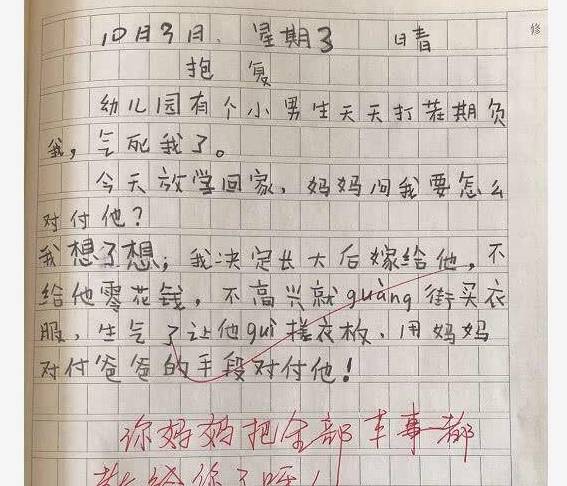 修
10月3日. 星期3 晴
抱 复
幼儿园有个小男生天天打茬期负
我，气死我了。
今天放学回家，妈妈问我要怎么
对付他？
我想了想，我决定长大后嫁给他，不
给他零花钱，不高兴就guàng街买衣
服，生气了让他guì搓衣板，用妈妈
对付爸爸的手段对付他！
你妈妈把全部本事都
教给你了呀！